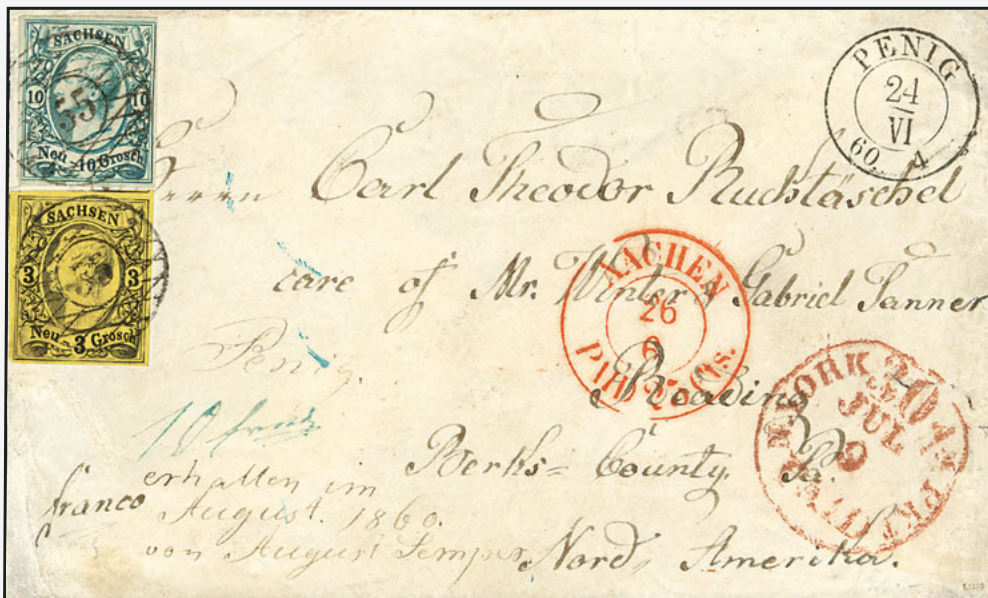 SACHSEN
10 10
55
Neu - 10 Grosch
SACHSEN
3 3
Neu - 3 Grosch
PENIG
24
VI
60 4
Herrn Carl Theodor Ruchtäschel
care of Mr. Winter & Gabriel Tanner
AACHEN
26
6
PAID Cts.
Penig.
Reading
N. YORK 30 PKT
JUL
9
PAID
10 fr
Berks= County. Pa.
franco
erhalten im
August. 1860.
von August Semper
Nord, Amerika.